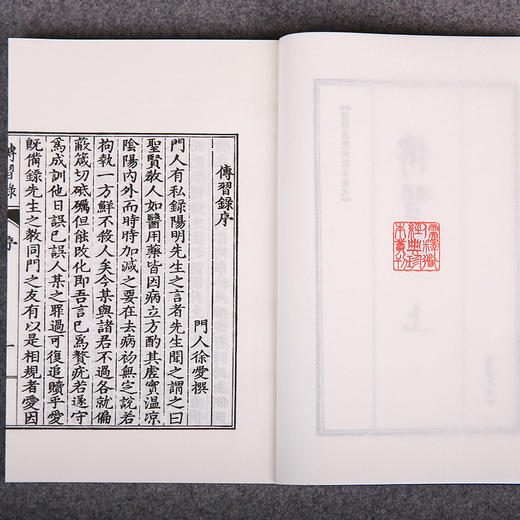 傳習錄序
門人徐愛撰
門人有私錄陽明先生之言者先生聞之謂之曰
聖賢敎人如醫用藥皆因病立方酌其虛實溫凉
陰陽內外而時時加減之要在去病初無定說若
拘執一方鮮不殺人矣今某與諸君不過各就偏
蔽箴切砥礪但能改化即吾言已爲贅疣若遂守
爲成訓他日誤己誤人某之罪過可復追贖乎愛
旣備錄先生之敎同門之友有以是相規者愛因
傳習錄 序 一
儒釋道
經典珍
本叢刊
上